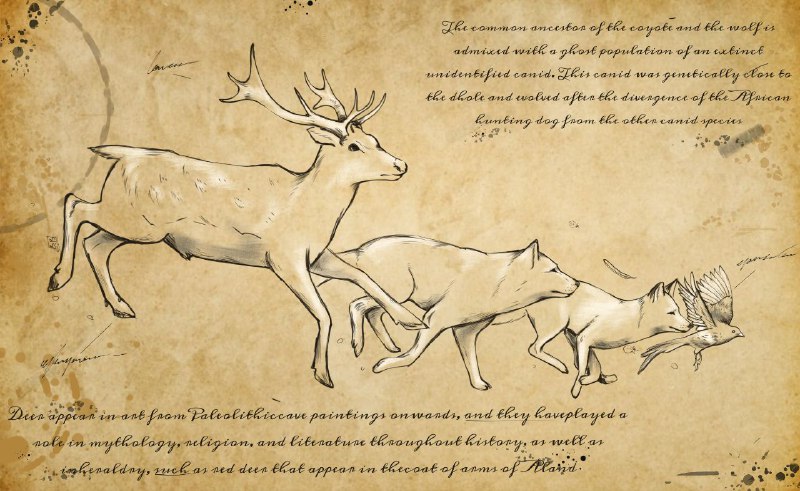 The common ancestor of the coyote and the wolf is
admixed with a ghost population of an extinct
unidentified canid. This canid was genetically close to
the dhole and evolved after the divergence of the African
hunting dog from the other canid species
Deer appear in art from Paleolithiccave paintings onwards, and they haveplayed a
role in mythology, religion, and literature throughout history, as well as
inheraldry, such as red deer that appear in thecoat of arms of Åland.